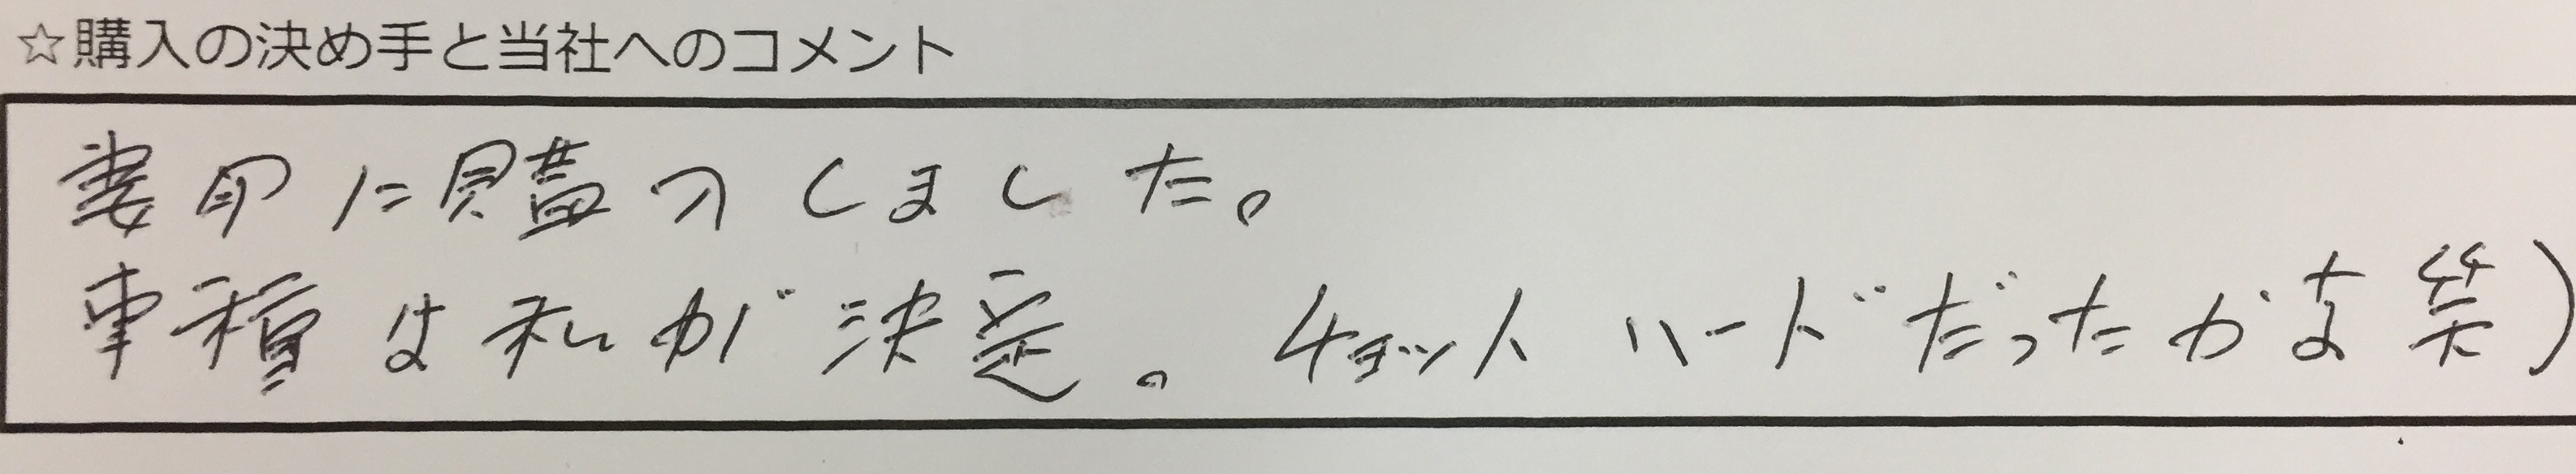 ☆購入の決め手と当社へのコメント
妻用に購入しました。
車種は私が決定。チョットハードだったかな笑)